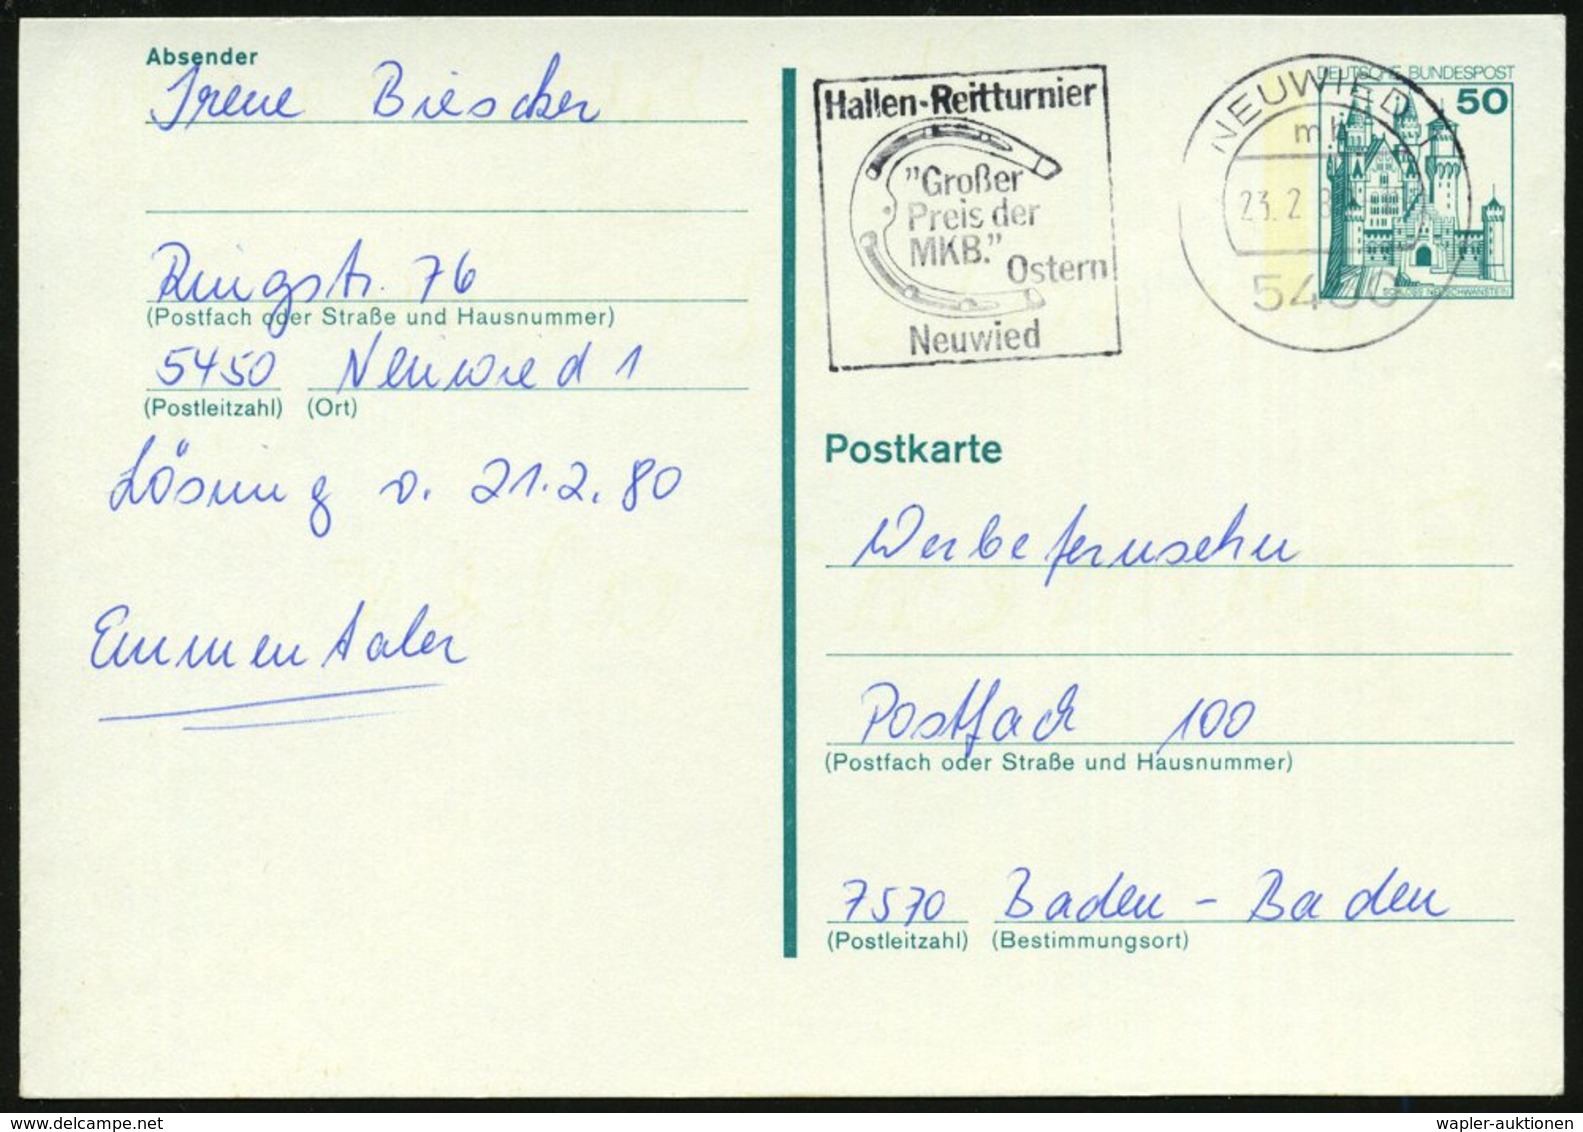 Absender
Irene Biescher
Ringstr. 76
(Postfach oder Straße und Hausnummer)
5450 Neuwied 1
(Postleitzahl) (Ort)
Lösung v. 21.2.80
Emmentaler
Hallen-Reitturnier
"Großer
Preis der
MKB."
Ostern
Neuwied
NEUWIED 1
mh
23.2.8
5450
DEUTSCHE BUNDESPOST
50
SCHLOSS NEUSCHWANSTEIN
Postkarte
Werbefernsehen
Postfach 100
(Postfach oder Straße und Hausnummer)
7570 Baden-Baden
(Postleitzahl) (Bestimmungsort)
wapler-auktionen
www.delcampe.net